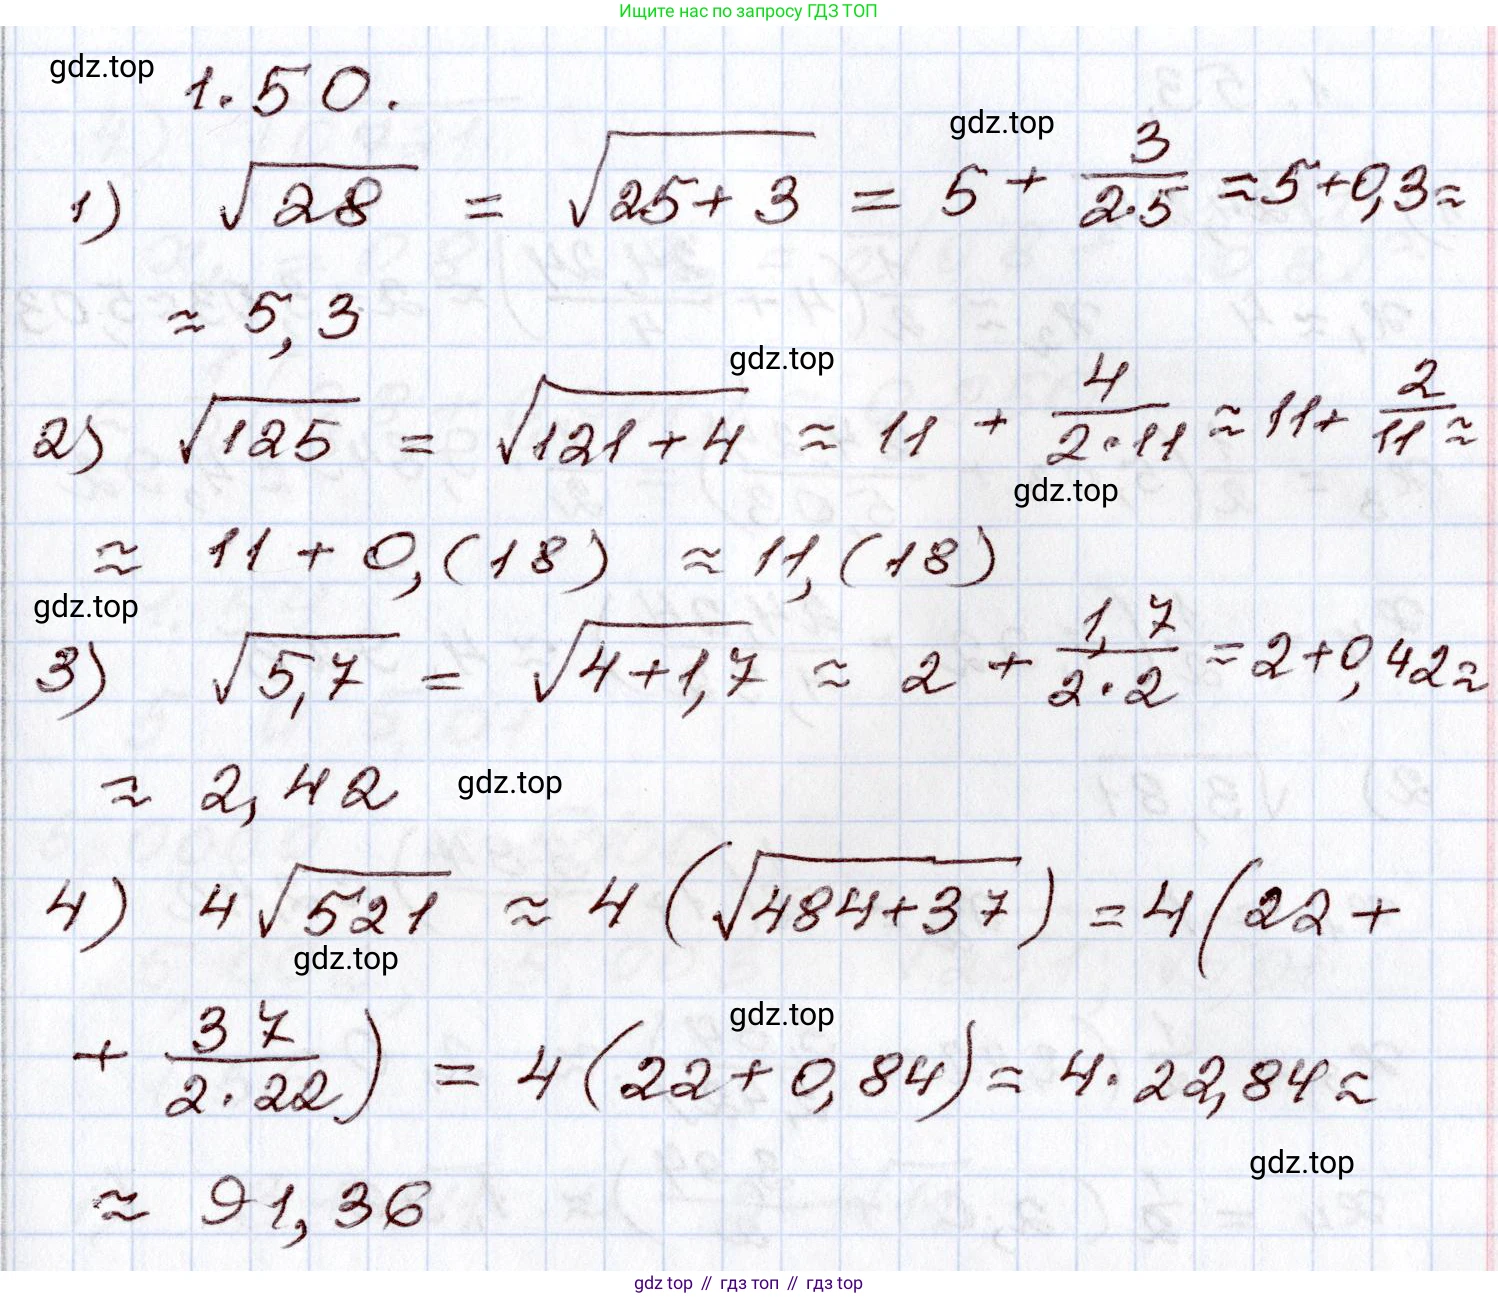 Ищите нас по запросу ГДЗ ТОП
gdz.top
1.50.
gdz.top
1) √28 = √(25+3) = 5 + 3/(2·5) ≈ 5+0,3 ≈
≈ 5,3
gdz.top
2) √125 = √(121+4) ≈ 11 + 4/(2·11) ≈ 11+ 2/11 ≈
gdz.top
≈ 11 + 0,(18) ≈ 11,(18)
gdz.top
3) √5,7 = √(4+1,7) ≈ 2 + 1,7/(2·2) ≈ 2+0,42 ≈
≈ 2,42
gdz.top
4) 4√521 ≈ 4(√(484+37)) = 4(22 +
gdz.top
+ 37/(2·22)) = 4(22+0,84) = 4·22,84 ≈
gdz.top
gdz.top
≈ 91,36
gdz top // гдз топ // гдз top